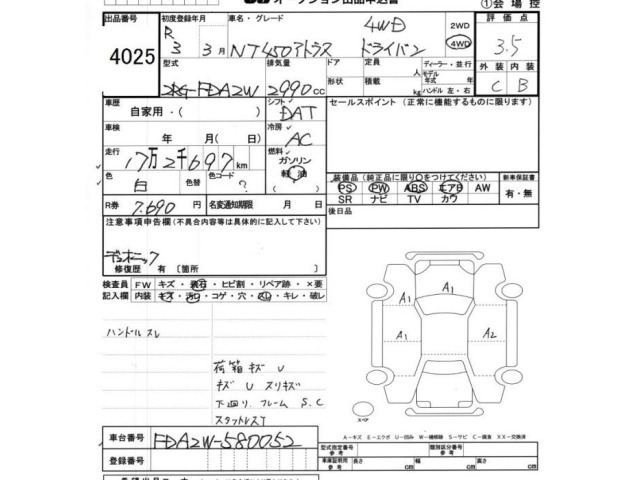 オークション出品申込書
①会場控
出品番号 初度登録年月 車名・グレード 2WD 評価点
4025 R 3 3月 NT450アトラス 4WD ドライバン 4WD 3.5
型式 排気量 ドア 定員 ディーラー・並行 外装 内装
2RG-FDA2W 2990cc 形状 積載 人 kg モデル年式 年 ハンドル 左・右 C B
車歴 シフト セールスポイント (正常に機能するものに限ります)
自家用・( ) DAT
車検 冷房
年 月( 日) AC
走行 燃料
17万2千697km ガソリン
軽油
色 色替 色コード 装備品(純正品に限り○をつけてください) 新車保証書
白 ? PS PW ABS エアB AW 有・無
SR ナビ TV カワ
R券 7,690円 名変通知期限 月 日 後日品
注意事項申告欄(不具合内容等は具体的に記入して下さい)
デュオニック
修復歴 有 〔箇所 〕
検査員 FW キズ・飛石・ヒビ割・リペア跡・×要
記入欄 内装 キズ・汚れ・コゲ・穴・スレ・キレ・破レ
A1
A1
A1
A2
ハンドルスレ
荷箱キズ U
キズ U スリキズ
下廻り、フレーム S.C
スタットレスT
スペア
A-キズ E-エクボ U-凹み W-補修跡 S-サビ C-腐食 XX-交換済
車台番号 FDA2W-580052
型式指定番号 参考 類別区分番号 参考
登録番号 車庫証明用 参考 長さ cm 幅 cm 高さ cm